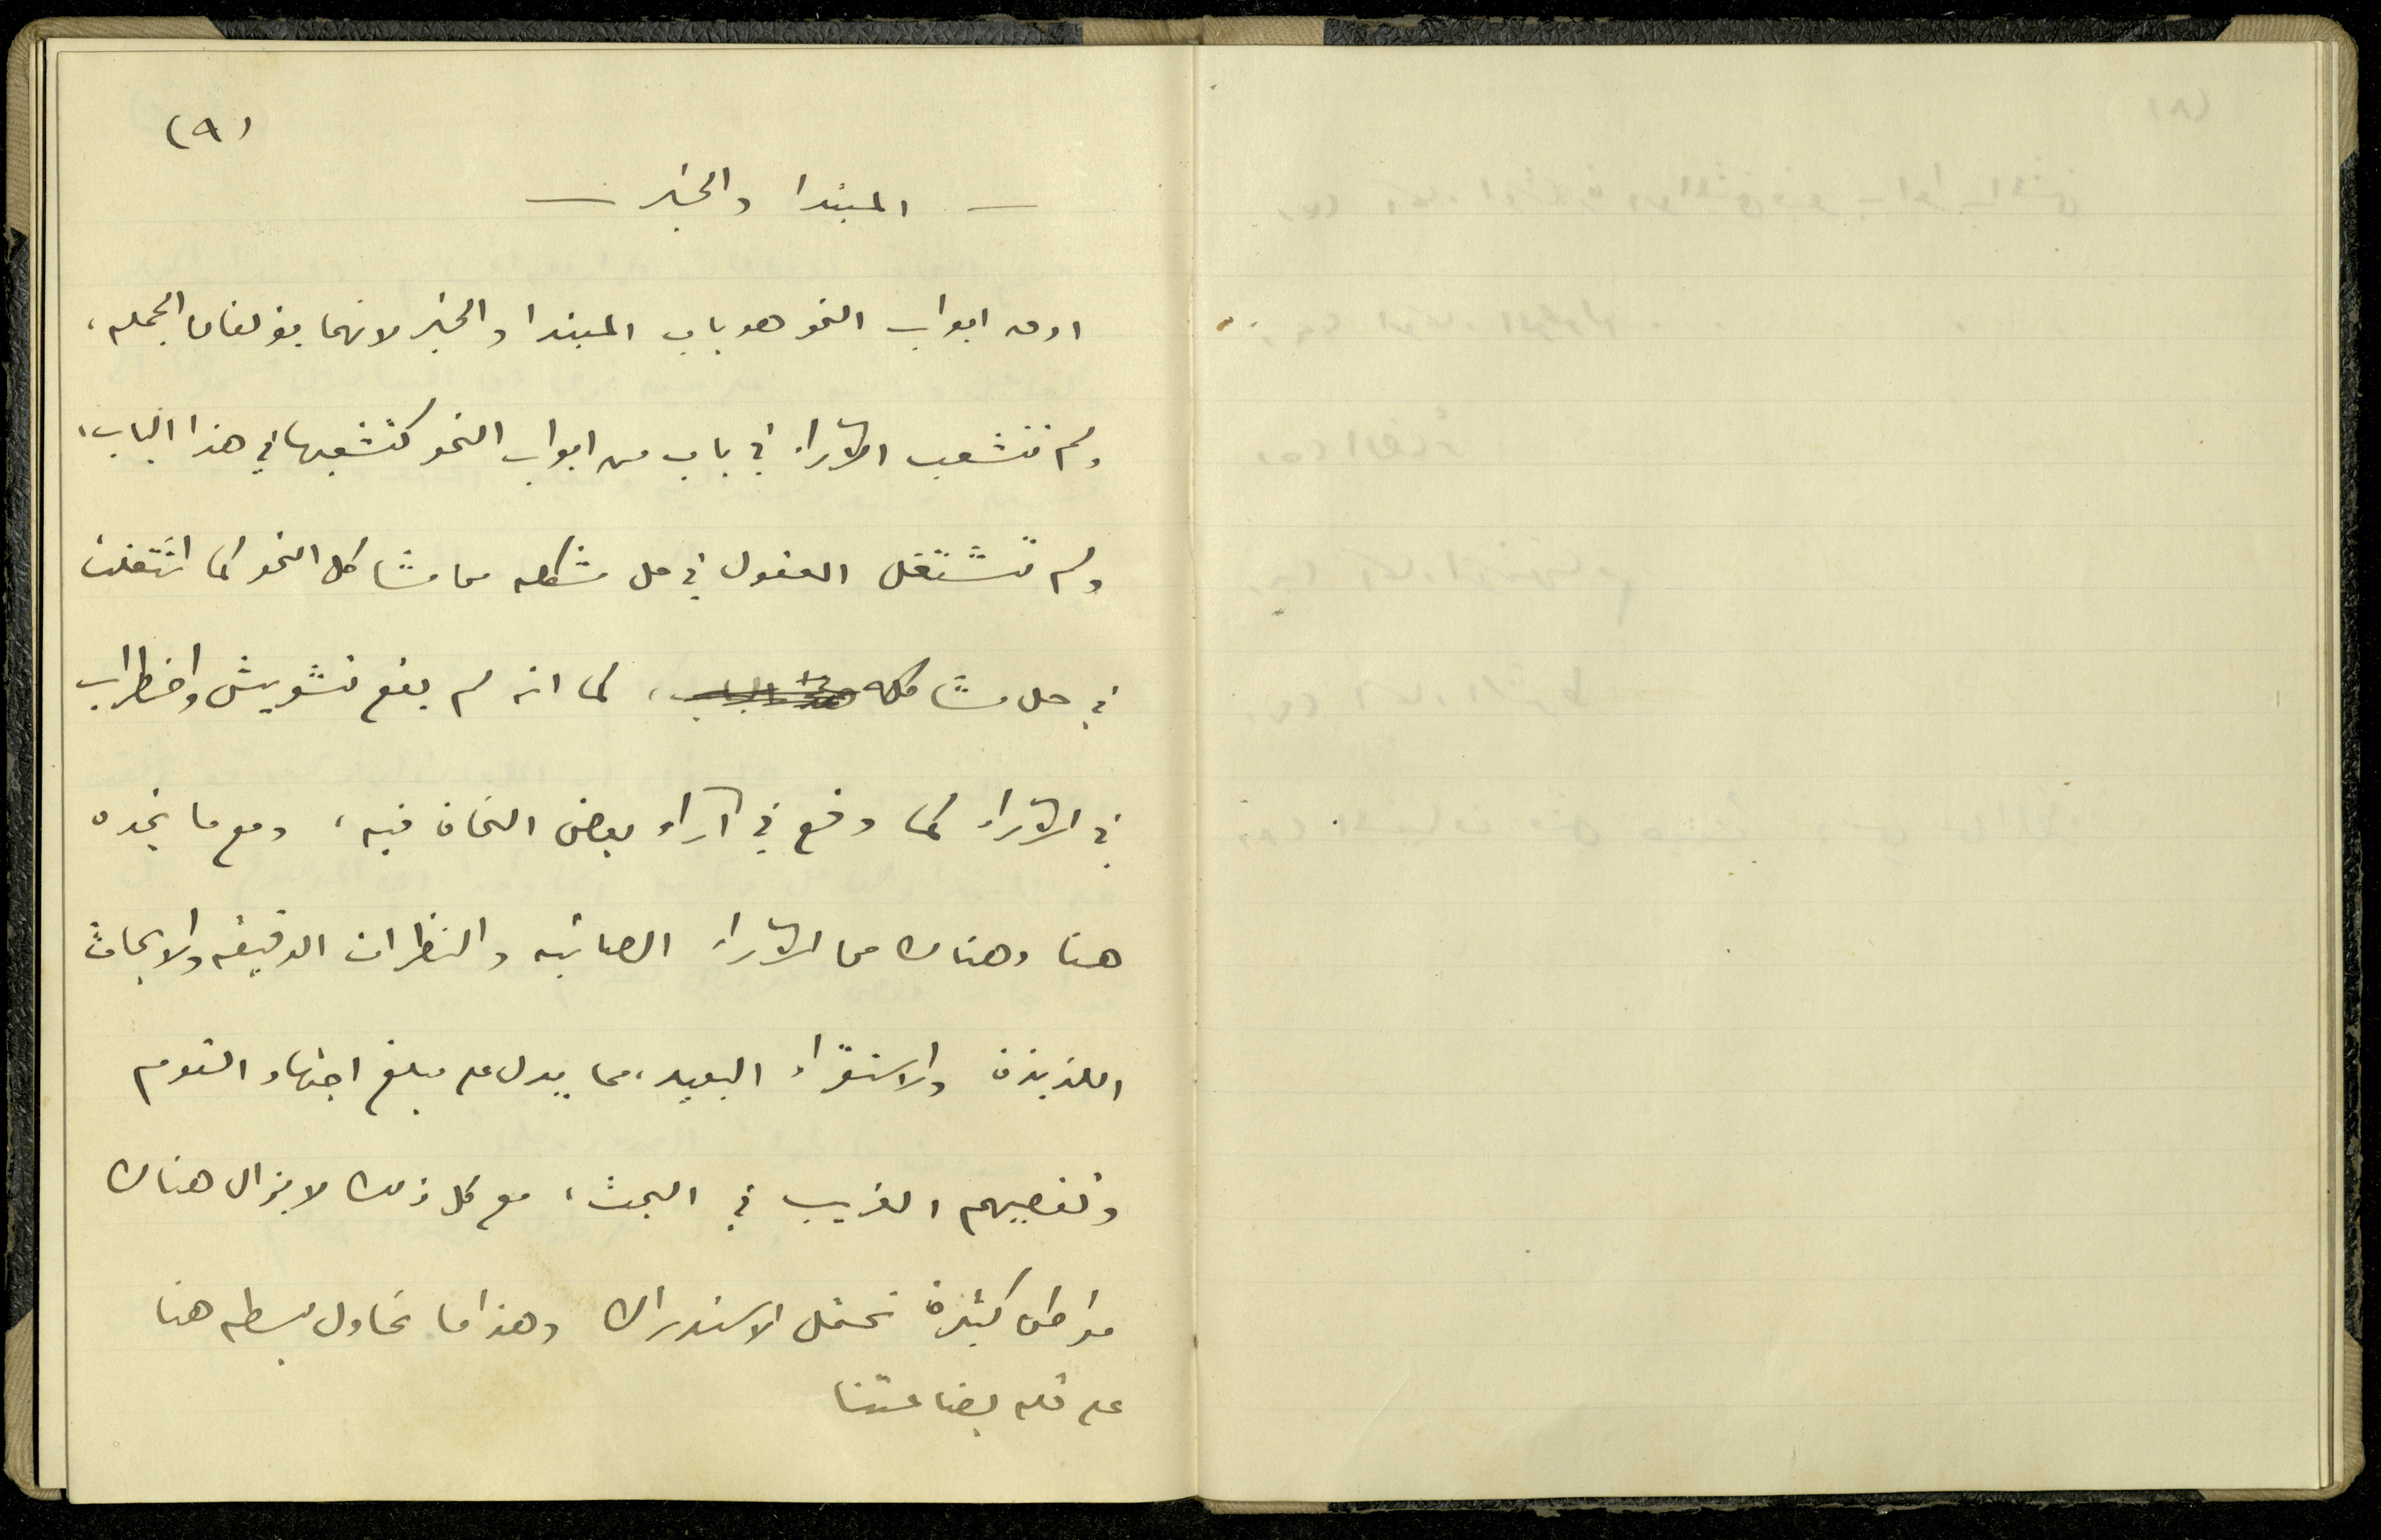 (٩)
— المبتدا والخبر —
اول ابواب النحو هو باب المبتدا والخبر لانهما يؤلفان الجمله،
ولم تتشعب الآراء في باب من ابواب النحو كتشعبها في هذا الباب،
ولم تشتغل العقول في حل مشكله من مشاكل النحو كما اشتغلت
في حل مشاكله هذا الباب، كما انه لم يقع تشويش واضطراب
في الآراء كما وقع في آراء بعض النحاة فيه، ومع ما نجده
هنا وهناك من الآراء الصائبه والنظرات الدقيقه والابحاث
اللذيذة والاستقراء البعيد، مما يدل على مبلغ اجتهاد القوم
وتقصيهم الغريب في البحث، مع كل ذلك لا يزال هناك
مواطن كثيرة تحتمل الاستدراك وهذا ما نحاول بسطه هنا
على قله بضاعتنا